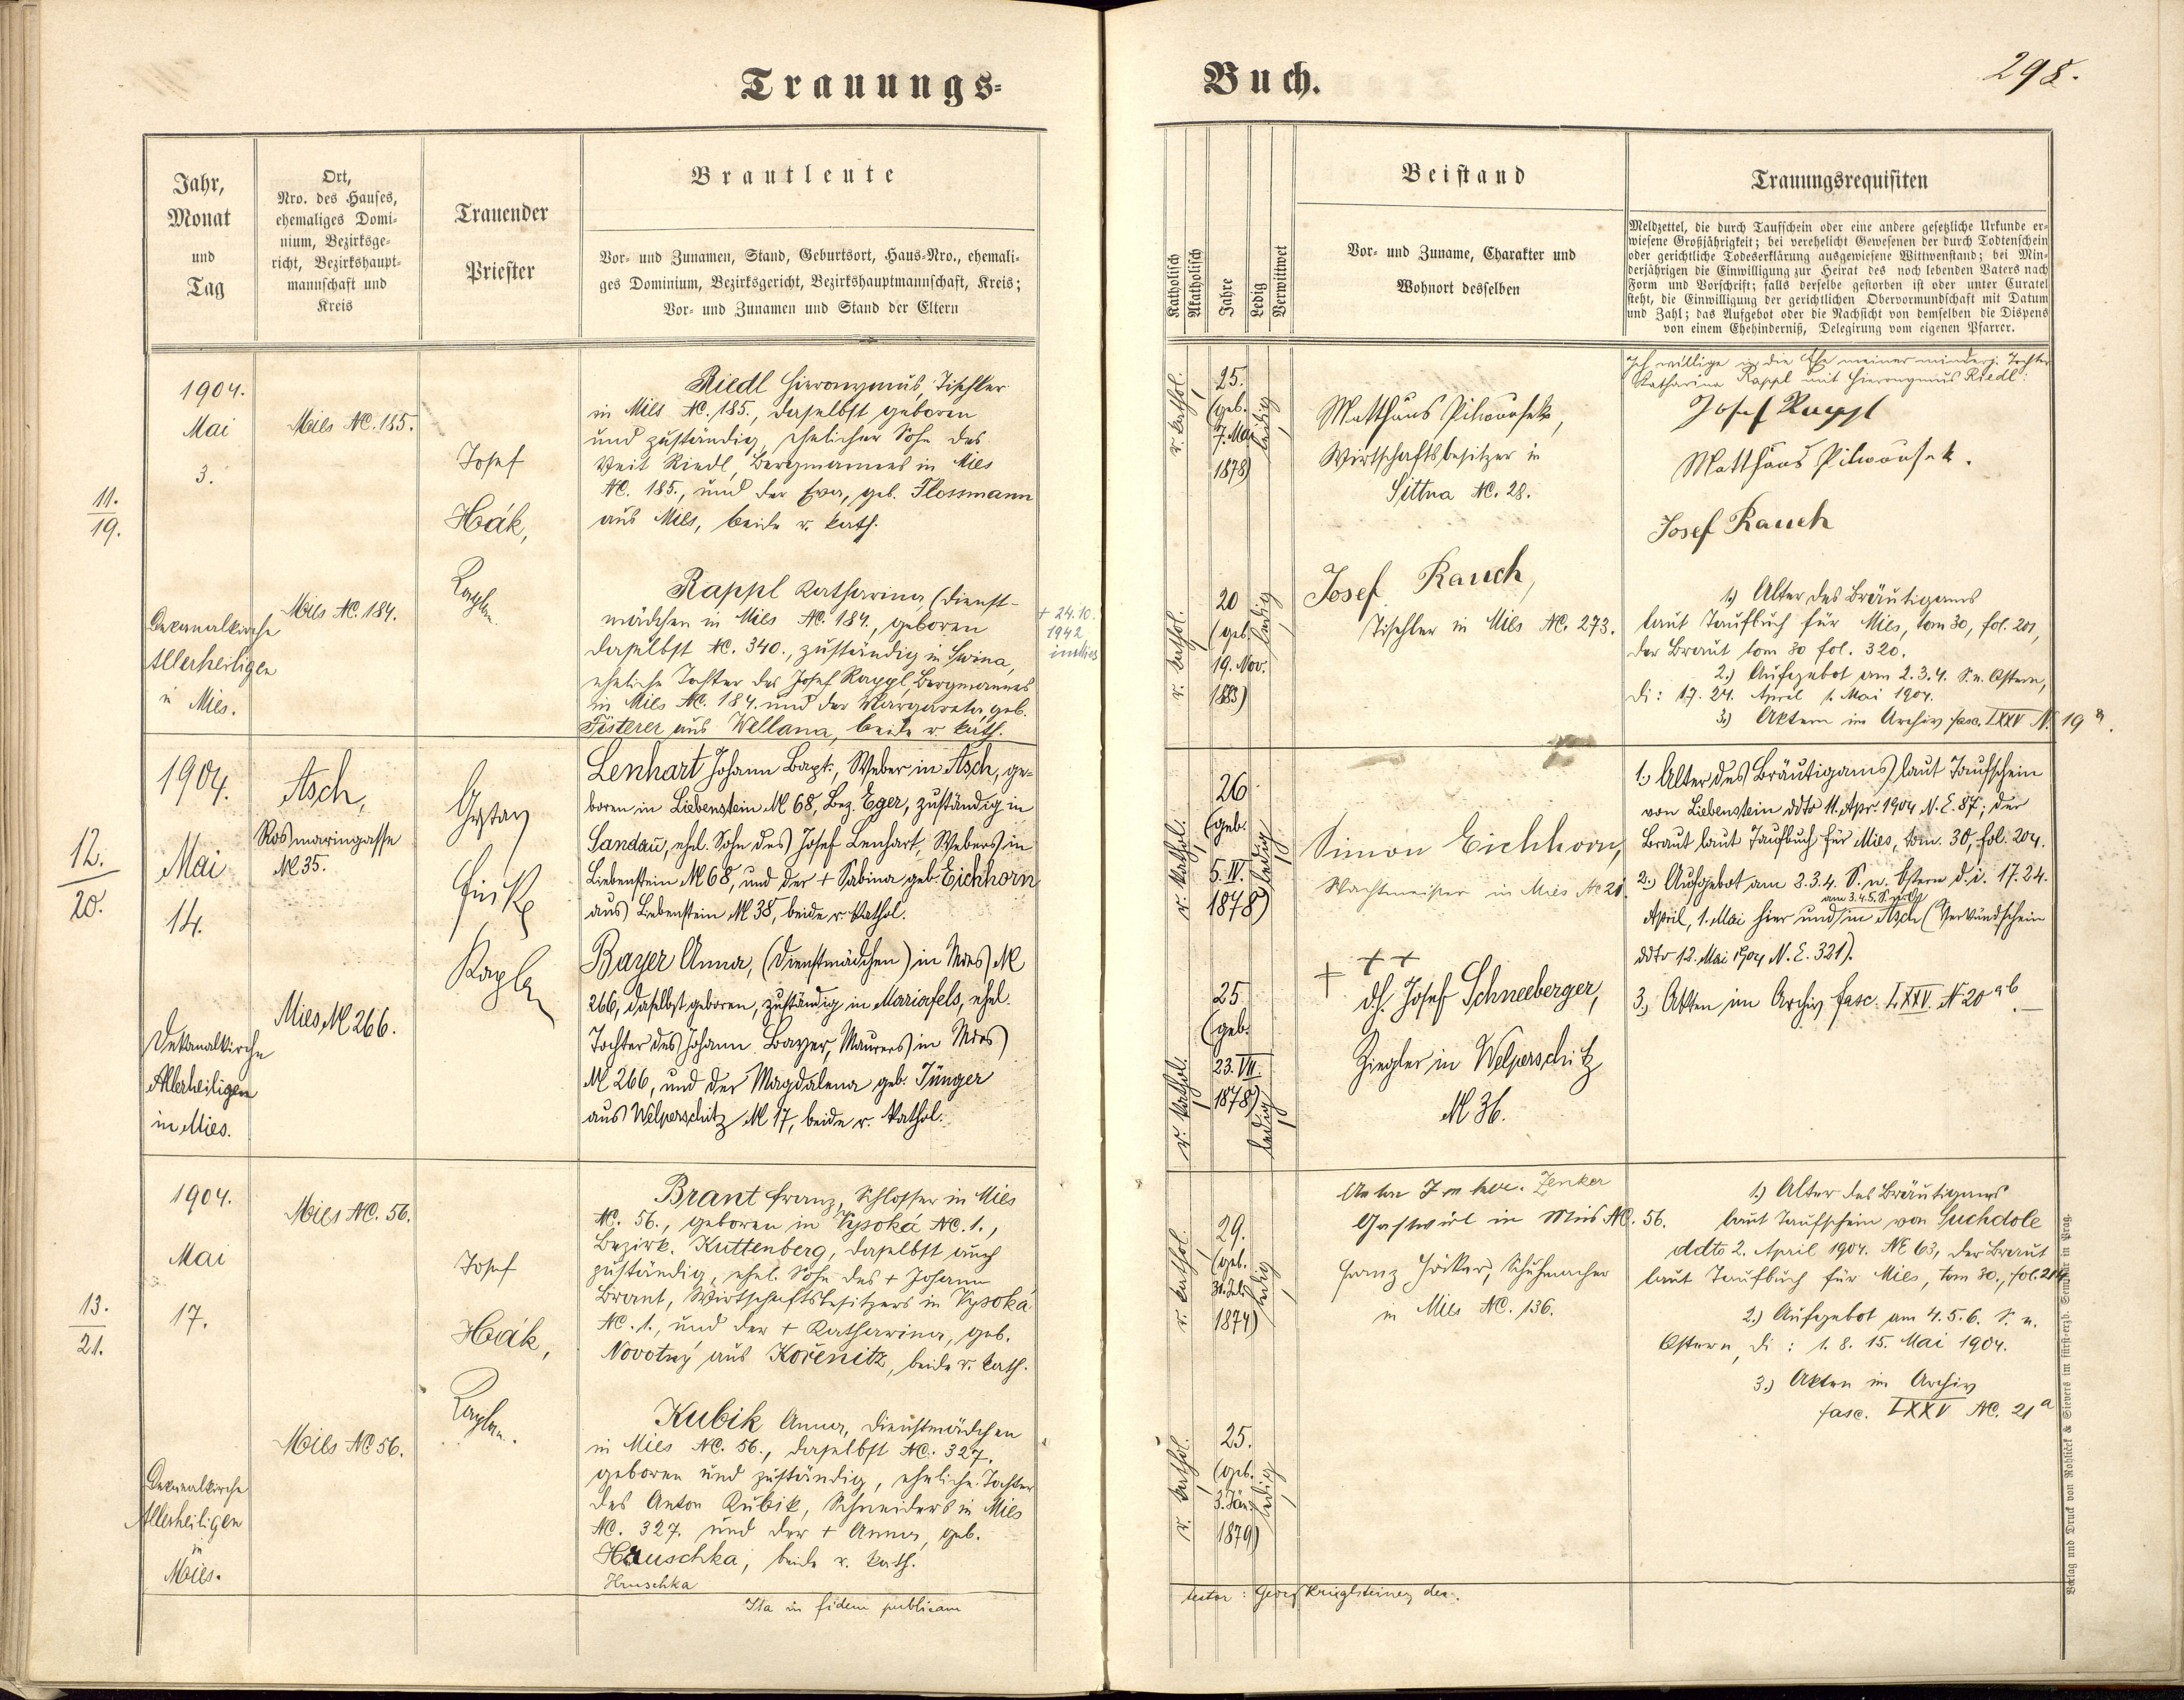 Trauungs-
Buch.
298.
Jahr,
Monat
und
Tag
Ort,
Nro. des Hauses,
ehemaliges Domi-
nium, Bezirksge-
richt, Bezirkshaupt-
mannschaft und
Kreis
Trauender
Priester
Brautleute
Vor- und Zunamen, Stand, Geburtsort, Haus-Nro., ehemali-
ges Dominium, Bezirksgericht, Bezirkshauptmannschaft, Kreis;
Vor- und Zunamen und Stand der Eltern
Katholisch
Akatholisch
Jahre
Ledig
Verwittwet
Beistand
Vor- und Zuname, Charakter und
Wohnort desselben
Trauungsrequisiten
Meldzettel, die durch Taufschein oder eine andere gesetzliche Urkunde er-
wiesene Großjährigkeit; bei verehelicht Gewesenen der durch Todtenschein
oder gerichtliche Todeserklärung ausgewiesene Wittwenstand; bei Min-
derjährigen die Einwilligung zur Heirat des noch lebenden Vaters nach
Form und Vorschrift; falls derselbe gestorben ist oder unter Curatel
steht, die Einwilligung der gerichtlichen Obervormundschaft mit Datum
und Zahl; das Aufgebot oder die Nachsicht von demselben die Dispens
von einem Ehehinderniß, Delegirung vom eigenen Pfarrer.
11.
19.
1904.
Mai
3.
Dekanalkirche
Allerheiligen
in Mies.
Mies NC. 185.
Mies NC. 184.
Josef
Hák,
Kaplan.
Riedl Hieronymus, Tischler
in Mies NC. 185., daselbst geboren
und zuständig, ehelicher Sohn des
Veit Riedl, Bergmannes in Mies
NC. 185., und der Eva, geb. Flossmann
aus Mies, beide r. kath.
Rappl Katharina, (Dienst-
mädchen in Mies NC. 184., geboren
daselbst NC. 340., zuständig in Swina,
eheliche Tochter des Josef Rappl, Bergmannes
in Mies NC. 184. und der Margareta, geb.
Fisterer aus Wellana, beide r. kath.
+ 24.10.
1942
in Mies
r. kathol.
25.
(geb.
7. Mai
1878)
ledig
r. kathol.
20
(geb.
19. Nov.
1883)
ledig
Matthäus Pilwousek,
Wirtschaftsbesitzer in
Sittna NC. 28.
Josef Rauch,
Tischler in Mies NC. 273.
Ich willige in die Ehe meiner minderj. Tochter
Katharina Rappl mit Hieronymus Riedl:
Josef Rappl
Matthäus Pilwousek.
Josef Rauch
1.) Alter des Bräutigams
laut Taufbuch für Mies, tom 30, fol. 201,
der Braut tom 30 fol. 320.
2.) Aufgebot am 2.3.4. S. n. Ostern,
di: 17. 24. April 1. Mai 1904.
3.) Akten im Archiv fasc. LXXV N. 19 a.
12.
20.
1904.
Mai
14.
Dekanalkirche
Allerheiligen
in Mies.
Asch,
Rosmaringasse
N 35.
Mies, N 266.
Gustav
Kaplan
Lenhart Johann Bapt., Weber in Asch, ge-
boren in Liebenstein N 68, Bez. Eger, zuständig in
Sandau, ehel. Sohn des Josef Lenhart, Webers in
Liebenstein N 68, und der + Sabina geb. Eichhorn
aus Liebenstein N 38, beide r. kathol.
Bayer Anna, (Dienstmädchen) in Mies N
266, daselbst geboren, zuständig in Mariafels, ehel.
Tochter des Johann Bayer, Maurers in Mies
N 266, und der Magdalena geb. Jünger
aus Welperschitz N 17, beide r. kathol.
r. kathol.
26
(geb.
5. IV.
1878)
ledig
r. kathol.
25
(geb.
23. VII.
1878)
ledig
Simon Eichhorn,
Wachtmeister in Mies NC 21.
+ + +
d.h. Josef Schneeberger,
Ziegler in Welperschitz
N 36.
1.) Alter des Bräutigams laut Taufschein
von Liebenstein ddto 11. Apr. 1904 N. E. 87; der
Braut laut Taufbuch für Mies, tom. 30, fol. 204.
2.) Aufgebot am 2.3.4. S. n. Ostern d. i. 17. 24.
am 3.4.5. S. n. O.
April, 1. Mai hier und in Asch (Verkündschein
ddto 12. Mai 1904 N. E. 321).
3.) Akten im Archiv fasc. LXXV. N 20 a b.
13.
21.
1904.
Mai
17.
Dekanalkirche
Allerheiligen
in
Mies.
Mies NC. 56.
Mies NC 56.
Josef
Hák,
Kaplan.
Brant Franz, Schlosser in Mies
NC. 56., geboren in Vysoká NC. 1.,
Bezirk. Kuttenberg, daselbst auch
zuständig, ehel. Sohn des + Johann
Brant, Wirtschaftsbesitzers in Vysoká
NC. 1., und der + Katharina, geb.
Novotný aus Kořenitz, beide r. kath.
Kubik Anna, Dienstmädchen
in Mies NC. 56., daselbst NC. 327.
geboren und zuständig, eheliche Tochter
des Anton Kubik, Schneiders in Mies
NC. 327. und der + Anna, geb.
Hruschka, beide r. kath.
Hruschka
Ita in fidem publicam
r. kathol.
29.
(geb.
1874)
ledig
r. kathol.
25.
(geb.
3. Jän.
1879)
ledig
Anton Zenker. Zenker
Gastwirt in Mies NC. 56.
Franz Höcker, Schuhmacher
in Mies NC. 136.
1.) Alter des Bräutigams
laut Taufschein von Suchdole
ddto 2. April 1904. NE 63, der Braut
laut Taufbuch für Mies, tom 30., fol. 214
2.) Aufgebot am 4.5.6. S. n.
Ostern, di: 1. 8. 15. Mai 1904.
3.) Akten im Archiv
fasc. LXXV NC. 21 a
testor: Georg Krieglsteiner, dec.
Verlag und Druck von Rohliček & Sievers im fürst-erzb. Seminar in Prag.